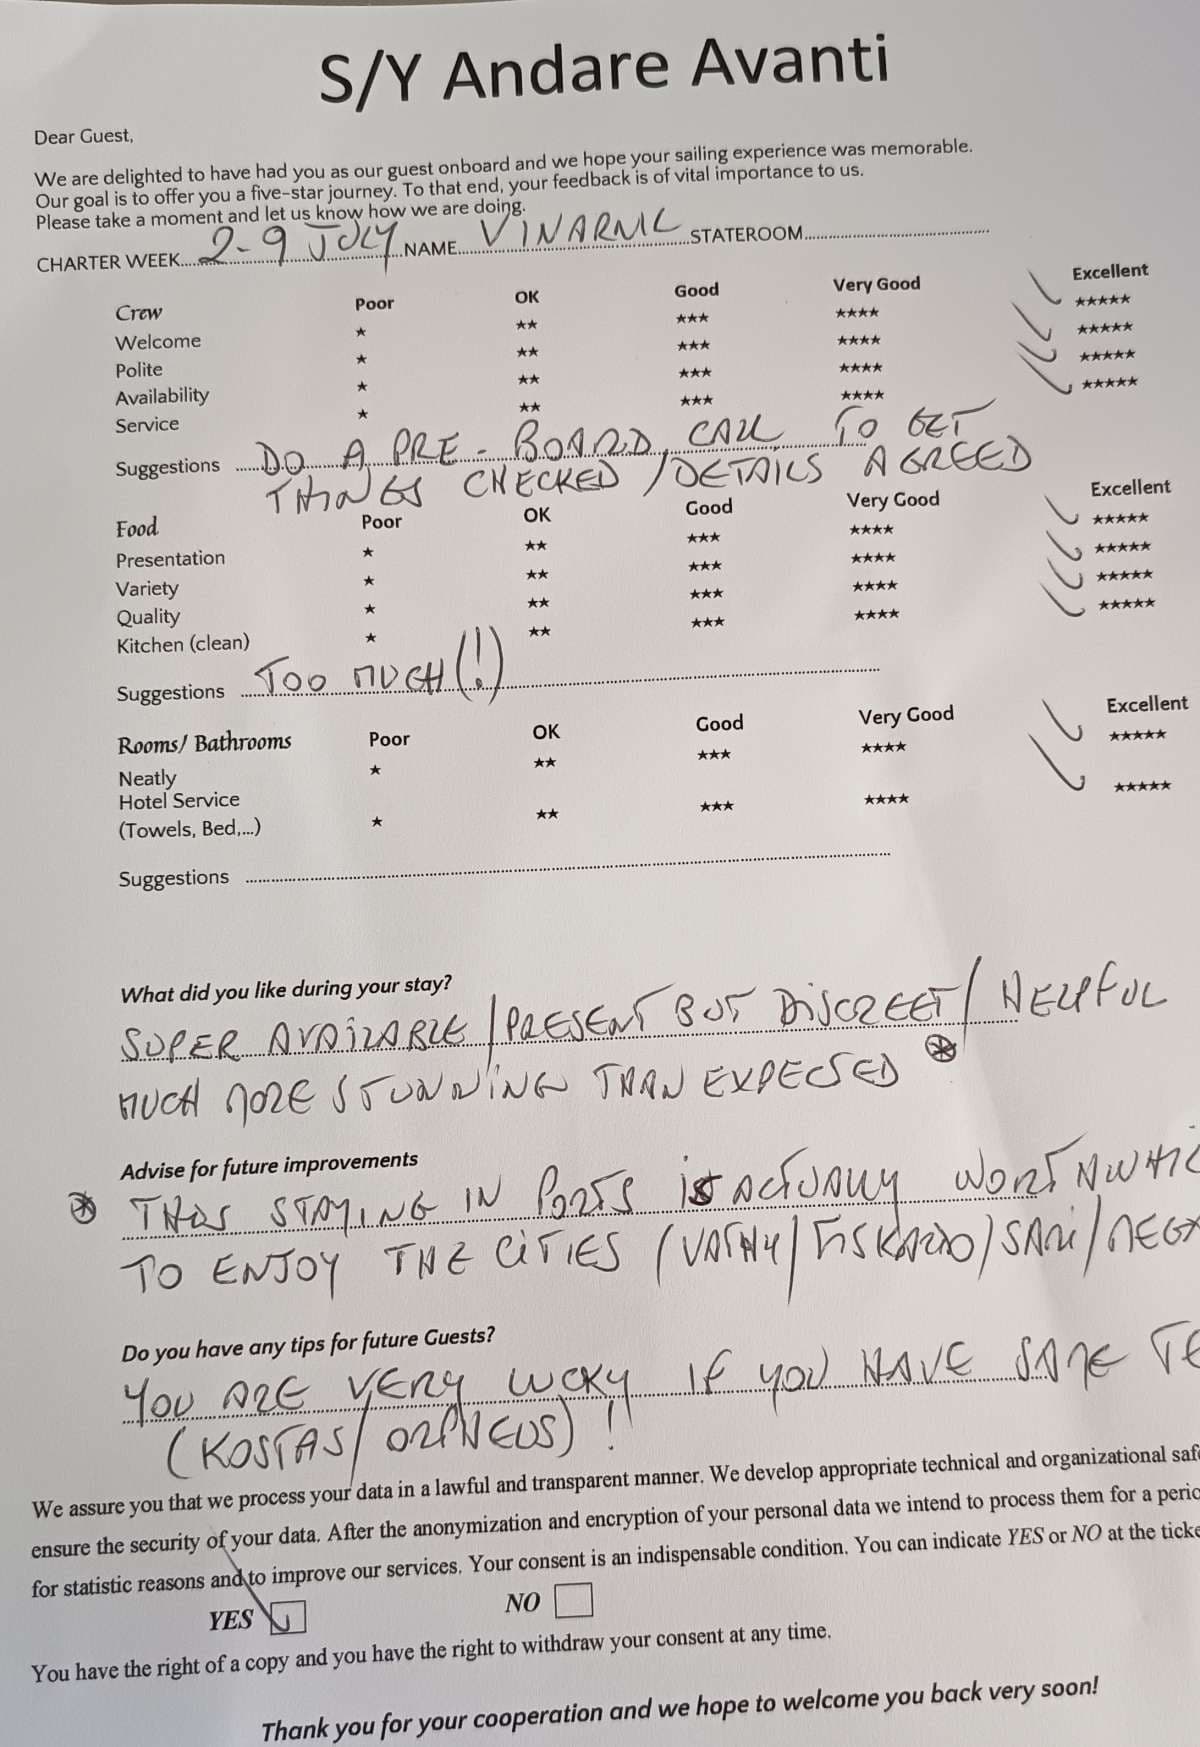 S/Y Andare Avanti
Dear Guest,
We are delighted to have had you as our guest onboard and we hope your sailing experience was memorable.
Our goal is to offer you a five-star journey. To that end, your feedback is of vital importance to us.
Please take a moment and let us know how we are doing.
CHARTER WEEK 2-9 JULY NAME STATEROOM
Crew Poor OK Good Very Good Excellent
Welcome ★ ★★ ★★★ ★★★★ ★★★★★
Polite ★ ★★ ★★★ ★★★★ ★★★★★
Availability ★ ★★ ★★★ ★★★★ ★★★★★
Service ★ ★★ ★★★ ★★★★ ★★★★★
Suggestions DO A PRE-BOARD CALL TO GET
THINGS CHECKED / DETAILS AGREED
Food Poor OK Good Very Good Excellent
Presentation ★ ★★ ★★★ ★★★★ ★★★★★
Variety ★ ★★ ★★★ ★★★★ ★★★★★
Quality ★ ★★ ★★★ ★★★★ ★★★★★
Kitchen (clean) ★ ★★ ★★★ ★★★★ ★★★★★
Suggestions TOO MUCH (!)
Rooms/ Bathrooms Poor OK Good Very Good Excellent
Neatly ★ ★★ ★★★ ★★★★ ★★★★★
Hotel Service
(Towels, Bed,...) ★ ★★ ★★★ ★★★★ ★★★★★
Suggestions
What did you like during your stay?
SUPER AVAILABLE / PRESENT BUT DISCREET / HELPFUL
MUCH MORE STUNNING THAN EXPECTED *
Advise for future improvements
* STAYING IN PORTS is ACTUALLY
TO ENJOY THE CITIES (VATHY / FISKARDO / SAMI /
Do you have any tips for future Guests?
YOU ARE VERY LUCKY IF YOU HAVE SAME
(KOSTAS / ORPHEUS) !
We assure you that we process your data in a lawful and transparent manner. We develop appropriate technical and organizational
ensure the security of your data. After the anonymization and encryption of your personal data we intend to process them for a
for statistic reasons and to improve our services. Your consent is an indispensable condition. You can indicate YES or NO at the
YES NO
You have the right of a copy and you have the right to withdraw your consent at any time.
Thank you for your cooperation and we hope to welcome you back very soon!